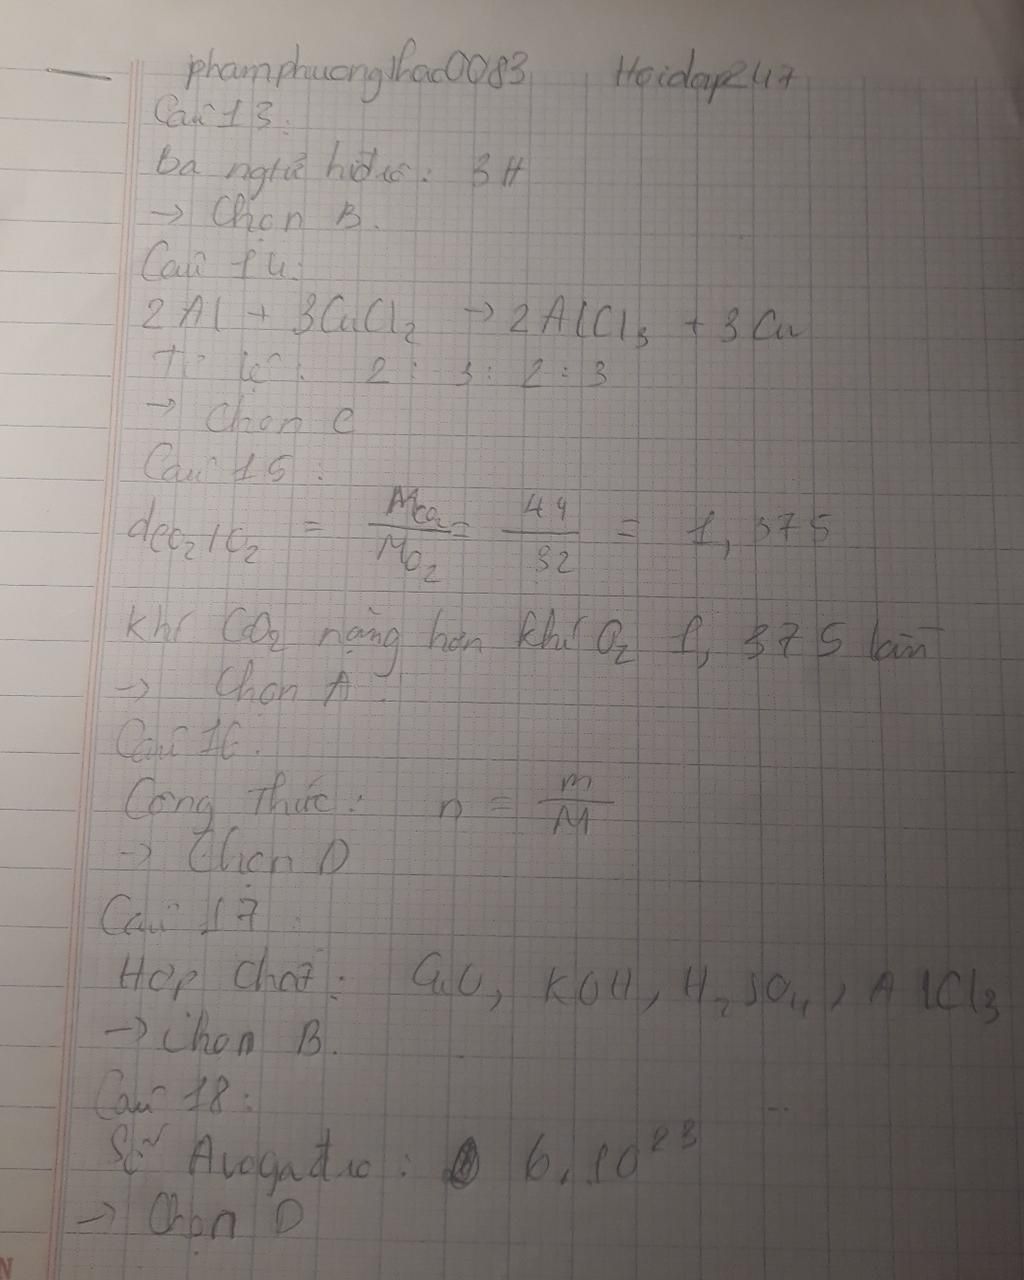 phamphuongthao0083 Hoidap247
Câu 13:
Ba ngtử hiđro: 3H
→ Chọn B.
Câu 14:
2Al + 3CuCl₂ → 2AlCl₃ + 3Cu
Tỉ lệ: 2 : 3 : 2 : 3
→ Chọn C
Câu 15:
dCO₂/O₂ = MCO₂/MO₂ = 44/32 = 1,375
Khí CO₂ nặng hơn khí O₂ 1,375 lần
→ Chọn A
Câu 16:
Công thức: n = m/M
→ Chọn D
Câu 17:
Hợp chất: CuO, KOH, H₂SO₄, AlCl₃
→ Chọn B.
Câu 18:
Số Avogađro: 6.10²³
→ Chọn D
N